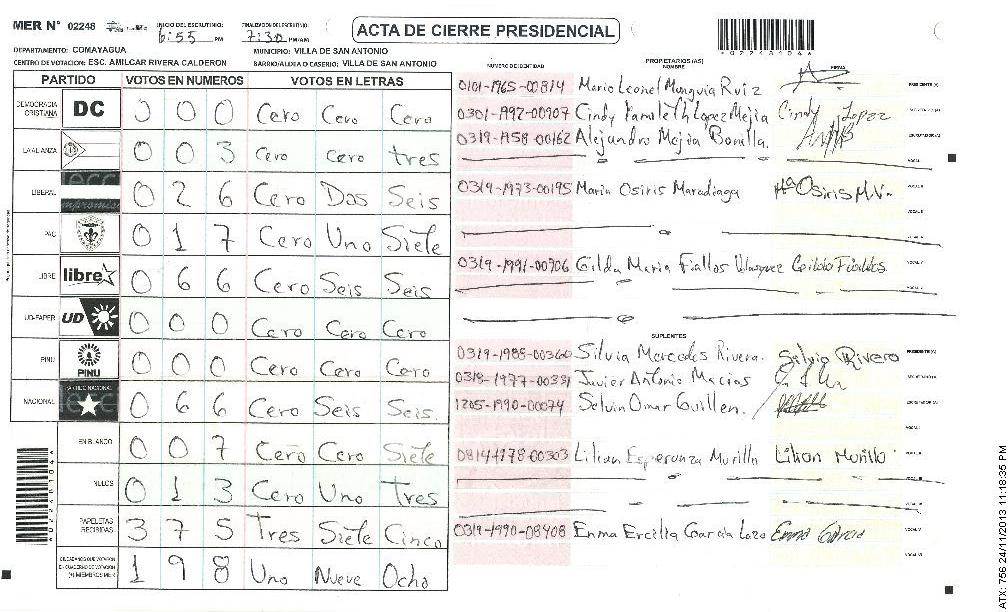 MER N° 02248 INICIO DEL ESCRUTINIO: 6:55 PM FINALIZACION DEL ESCRUTINIO: 7:30 PM/AM
ACTA DE CIERRE PRESIDENCIAL
DEPARTAMENTO: COMAYAGUA MUNICIPIO: VILLA DE SAN ANTONIO
CENTRO DE VOTACION: ESC. AMILCAR RIVERA CALDERON BARRIO/ALDEA O CASERIO: VILLA DE SAN ANTONIO
PARTIDO VOTOS EN NUMEROS VOTOS EN LETRAS
DEMOCRACIA CRISTIANA DC 0 0 0 Cero Cero Cero
LA ALIANZA 0 0 3 Cero cero tres
LIBERAL 0 2 6 Cero Dos Seis
PAC 0 1 7 Cero Uno Siete
LIBRE libre 0 6 6 Cero Seis Seis
UD-FAPER UD 0 0 0 Cero Cero Cero
PINU PINU 0 0 0 Cero Cero Cero
NACIONAL 0 6 6 Cero Seis Seis.
EN BLANCO 0 0 7 Cero Cero Siete
NULOS 0 1 3 Cero Uno Tres
PAPELETAS RECIBIDAS 3 7 5 Tres Siete Cinco
CIUDADANOS QUE VOTARON EN CUADERNO DE VOTACION (+) MIEMBROS MER 1 9 8 Uno Nueve Ocho
NUMERO DE IDENTIDAD PROPIETARIOS (AS) NOMBRE FIRMA
0101-1965-00814 Mario Leonel Munguia Ruiz PRESIDENTE (A)
0301-1992-00907 Cindy Yamileth Lopez Mejia Cindy Lopez SECRETARIO (A)
0319-1958-00162 Alejandro Mejia Bonilla. ESCRUTADOR (A)
VOCAL I
0319-1973-00195 Maria Osiris Maradiaga Mª Osiris M.V. VOCAL II
0319-1991-00906 Gilda Maria Fiallos Vasquez Gilda Fiallos VOCAL V
SUPLENTES
0319-1988-00360 Silvia Mercedes Rivera. Silvia Rivera PRESIDENTE (A)
0318-1977-00331 Javier Antonio Macias SECRETARIO (A)
1205-1990-00074 Selvin Omar Guillen. ESCRUTADOR (A)
VOCAL I
0814-1978-00303 Lilian Esperanza Murillo Lilian Murillo VOCAL II
VOCAL III
VOCAL IV
0319-1990-08408 Enma Ercilia Garcia Lozo Enma Garcia VOCAL V
VOCAL VI
ATX: 756 24/11/2013 11:18:35 PM